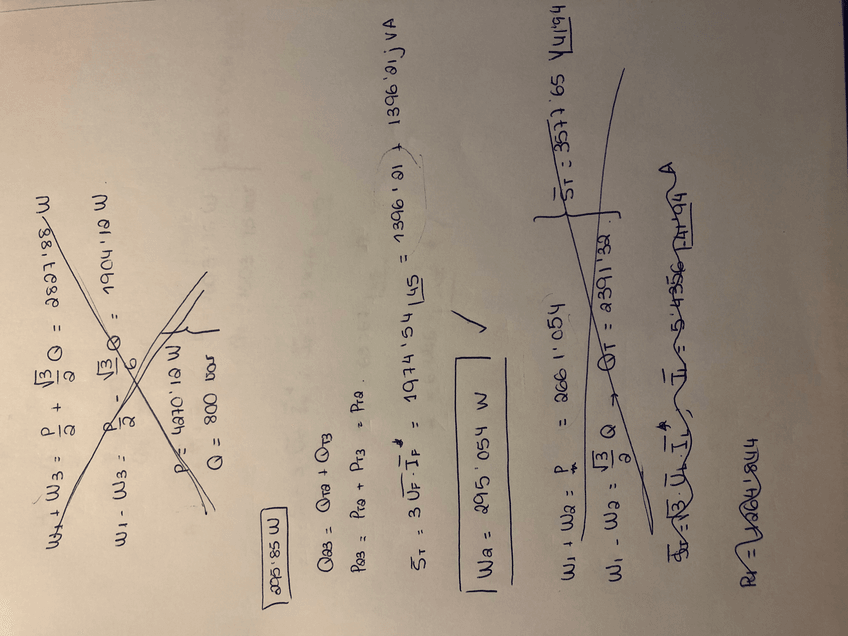 W1 + W3 = P/2 + √3/2 Q = 2827'88 W
W1 - W3 = P/2 - √3/6 Q = 1904'12 W.
P = 4270'12 W
Q = 800 var
295'85 W
Q23 = QT2 + QT3
P23 = PT2 + PT3 = PT2.
S̄T = 3 ŪF · ĪF* = 1974'54 ∠45 = 1396'21 + 1396'21j VA
W2 = 295'054 W ✓
W1 + W2 = P = 2661'054
W1 - W2 = √3/2 Q → QT = 2391'32. } S̄T = 3577'65 ∠41'94
S̄T = √3 · ŪL · ĪL*, ĪL = 5'4356 ∠-41'94 A